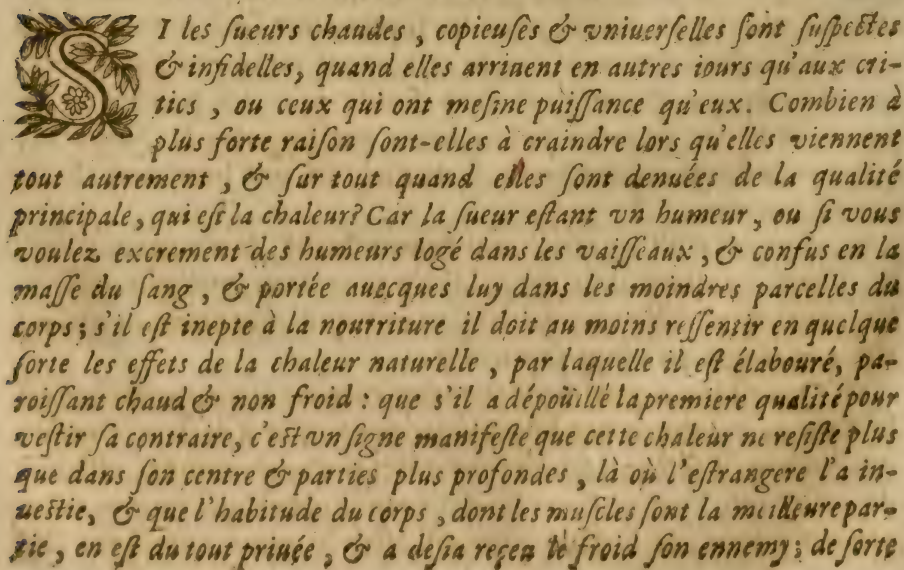 SI les ſueurs chaudes, copieuſes & vniuerſelles ſont ſuſpectes
& infidelles, quand elles arriuent en autres iours qu'aux cri-
tics, ou ceux qui ont meſme puiſſance qu'eux. Combien à
plus forte raiſon ſont-elles à craindre lors qu'elles viennent
tout autrement, & ſur tout quand elles ſont denuées de la qualité
principale, qui eſt la chaleur? Car la ſueur eſtant vn humeur, ou ſi vous
voulez excrement des humeurs logé dans les vaiſſeaux, & confus en la
maſſe du ſang, & portée auecques luy dans les moindres parcelles du
corps; s'il eſt inepte à la nourriture il doit au moins reſſentir en quelque
ſorte les effets de la chaleur naturelle, par laquelle il eſt élabouré, pa-
roiſſant chaud & non froid: que s'il a dépoüillé la premiere qualité pour
veſtir ſa contraire, c'eſt vn ſigne manifeſte que cette chaleur ne reſiſte plus
que dans ſon centre & parties plus profondes, là où l'eſtrangere l'a in-
ueſtie, & que l'habitude du corps, dont les muſcles ſont la meilleure par-
tie, en eſt du tout priuée, & a deſia reçeu le froid ſon ennemy; de ſorte